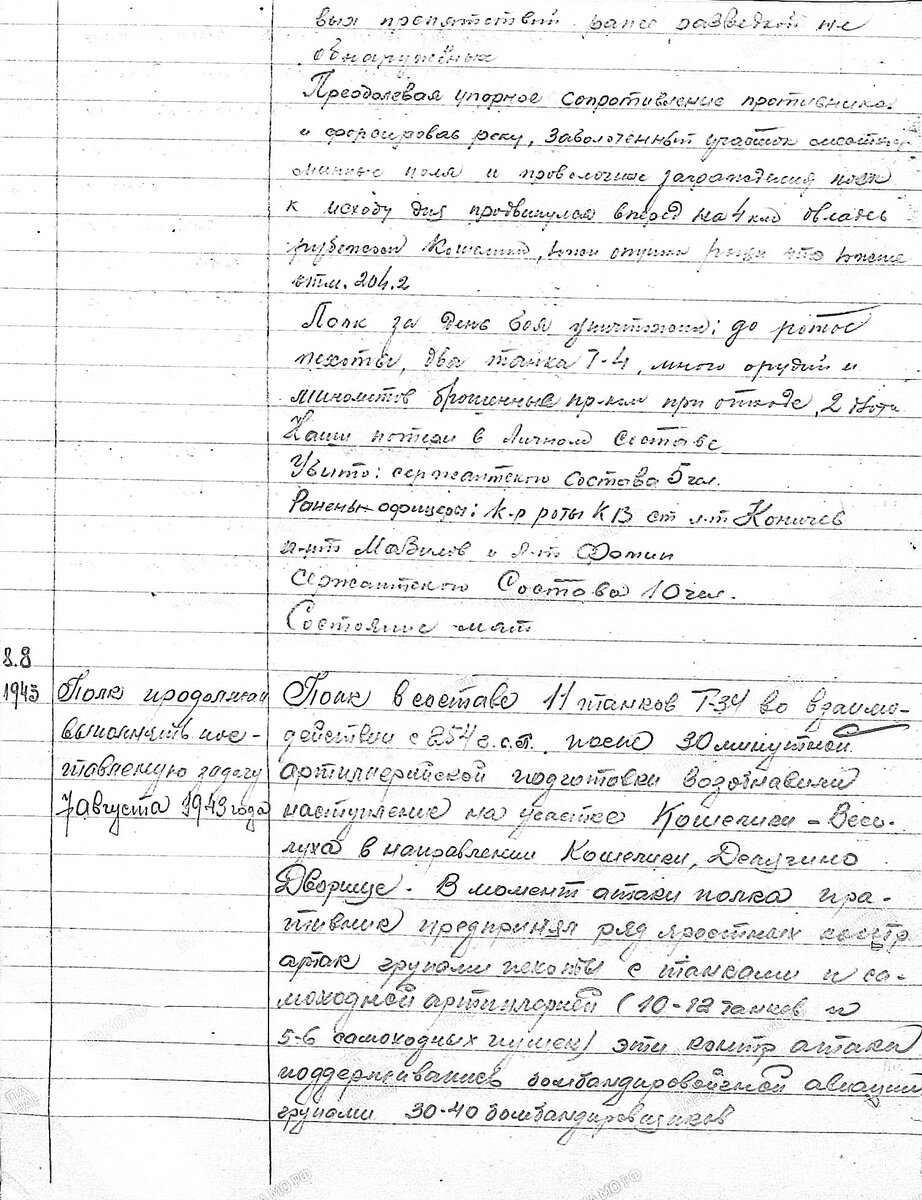 вых препятствий ранее разведкой не
обнаружены
Преодолевая упорное сопротивление противника
и форсировав реку, заболоченный участок
минные поля и проволочные заграждения полк
к исходу дня продвинулся вперед на 4 км овладев
рубежом Кошелики, южн опушка рощи что южнее
отм. 204.2
Полк за день боя уничтожил: до роты
пехоты, два танка Т-4, много орудий и
минометов брошенные пр-ком при отходе, 2
Наши потери в личном составе
Убито: сержантского состава 5 чел.
Ранены офицеры: к-р роты КВ ст л-т Коничев
л-нт Мавилов и л-т Фомин
Сержантского Состава 10 чел.
Состояние
8.8
1943 Полк продолжал Полк в составе 11 танков Т-34 во взаимо-
выполнять пос- действии с 254 г.с.п. после 30 минутной
тавленную задачу артиллерийской подготовки возобнавили
7 августа 1943 года наступление на участке Кошелики - Весе-
луха в направлении Кошелики, Делягино
Дворище. В момент атаки полка пра-
тивник предпринял ряд яростных контр
атак групами пехоты с танками и са-
моходной артилерией (10-12 танков и
5-6 самоходных пушек) эти контр атаки
поддерживались бомбандировочной авиации
групами 30-40 бомбандировщиков